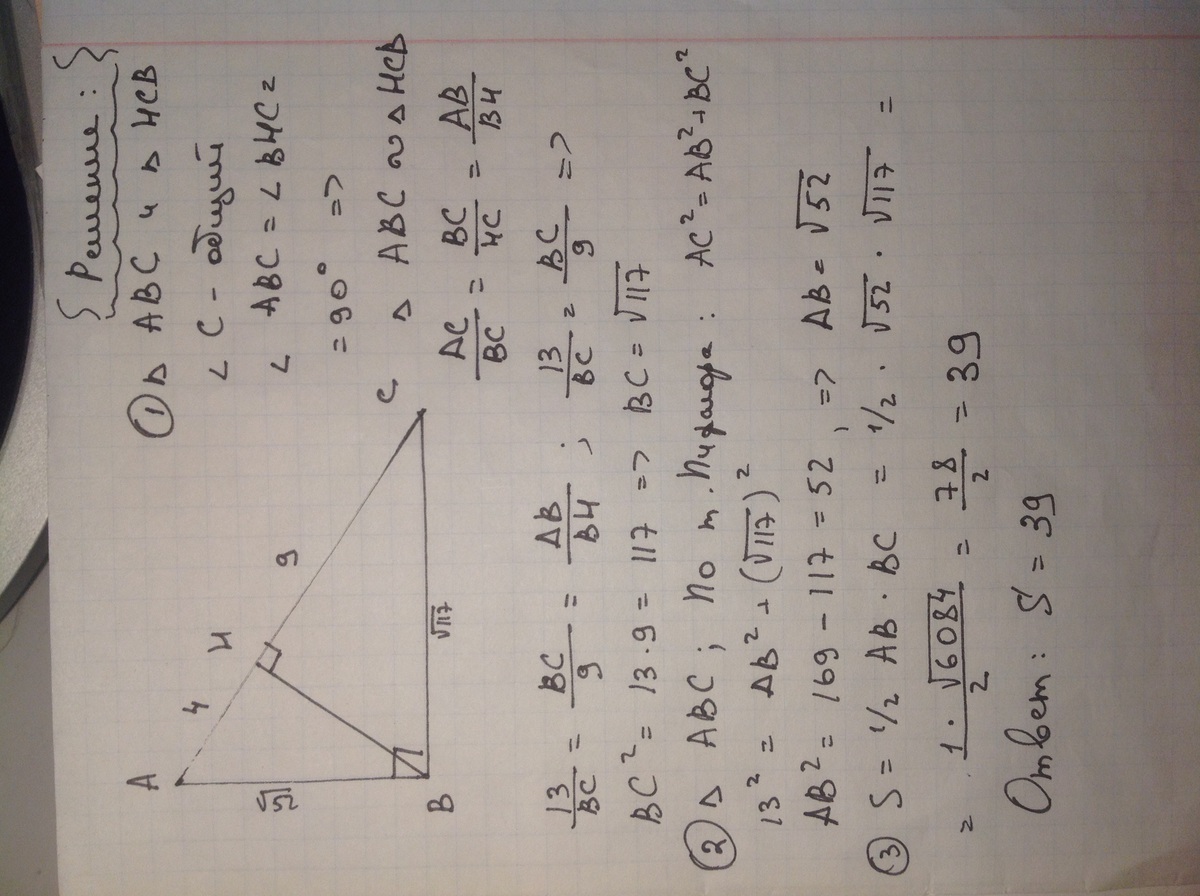 Решение:
① △ ABC и △ HCB
∠ C - общий
∠ ABC = ∠ BHC =
= 90° =>
△ ABC ∾ △ HCB
AC/BC = BC/HC = AB/BH
A
4
H
9
C
√52
B
√117
13/BC = BC/9 = AB/BH ; 13/BC = BC/9 =>
BC² = 13·9 = 117 => BC = √117
② △ ABC; По т. Пифагора: AC² = AB² + BC²
13² = AB² + (√117)²
AB² = 169 - 117 = 52, => AB = √52
③ S = 1/2 AB · BC = 1/2 · √52 · √117 =
= 1·√6084/2 = 78/2 = 39
Ответ: S = 39